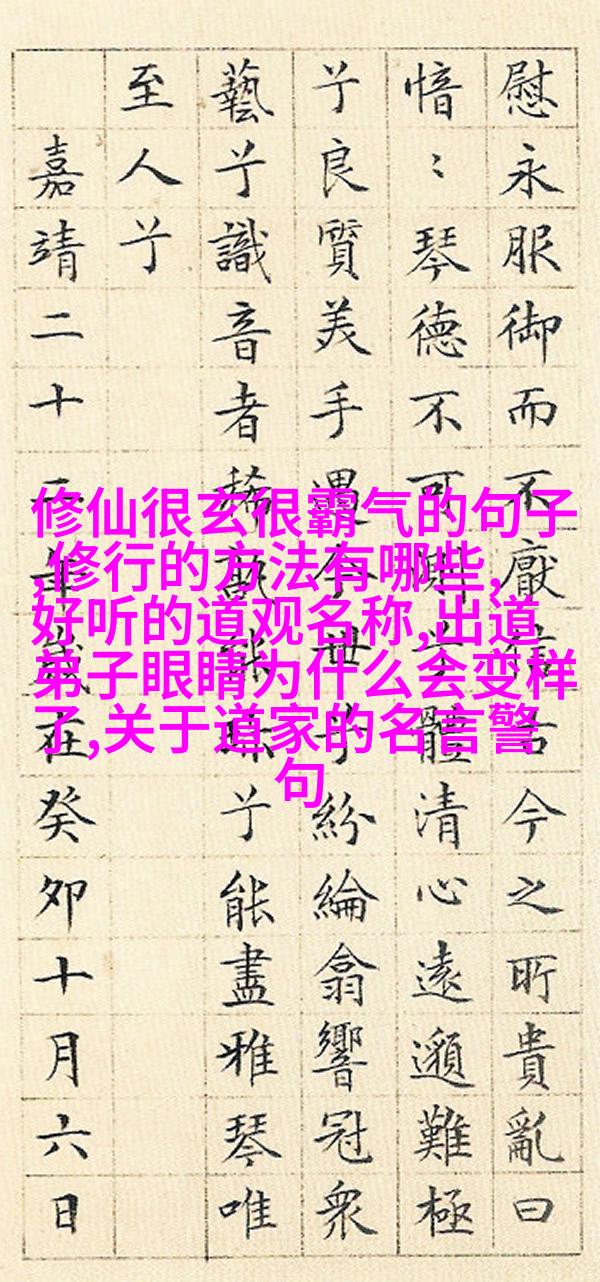 修仙很玄很霸气的句子
,修行的方法有哪些,
好听的道观名称,出道
弟子眼睛为什么会变样
了,关于道家的名言警
句
慰永服御而不厭信古今之所貴亂曰
愔〻琴德不可測兮體清心遠邈難極
兮良質美手遇今世兮紛綸翕響冠衆
藝兮識音者稀孰能珍兮能盡雅琴唯
至人兮
嘉靖二十二年歲在癸卯十月六日